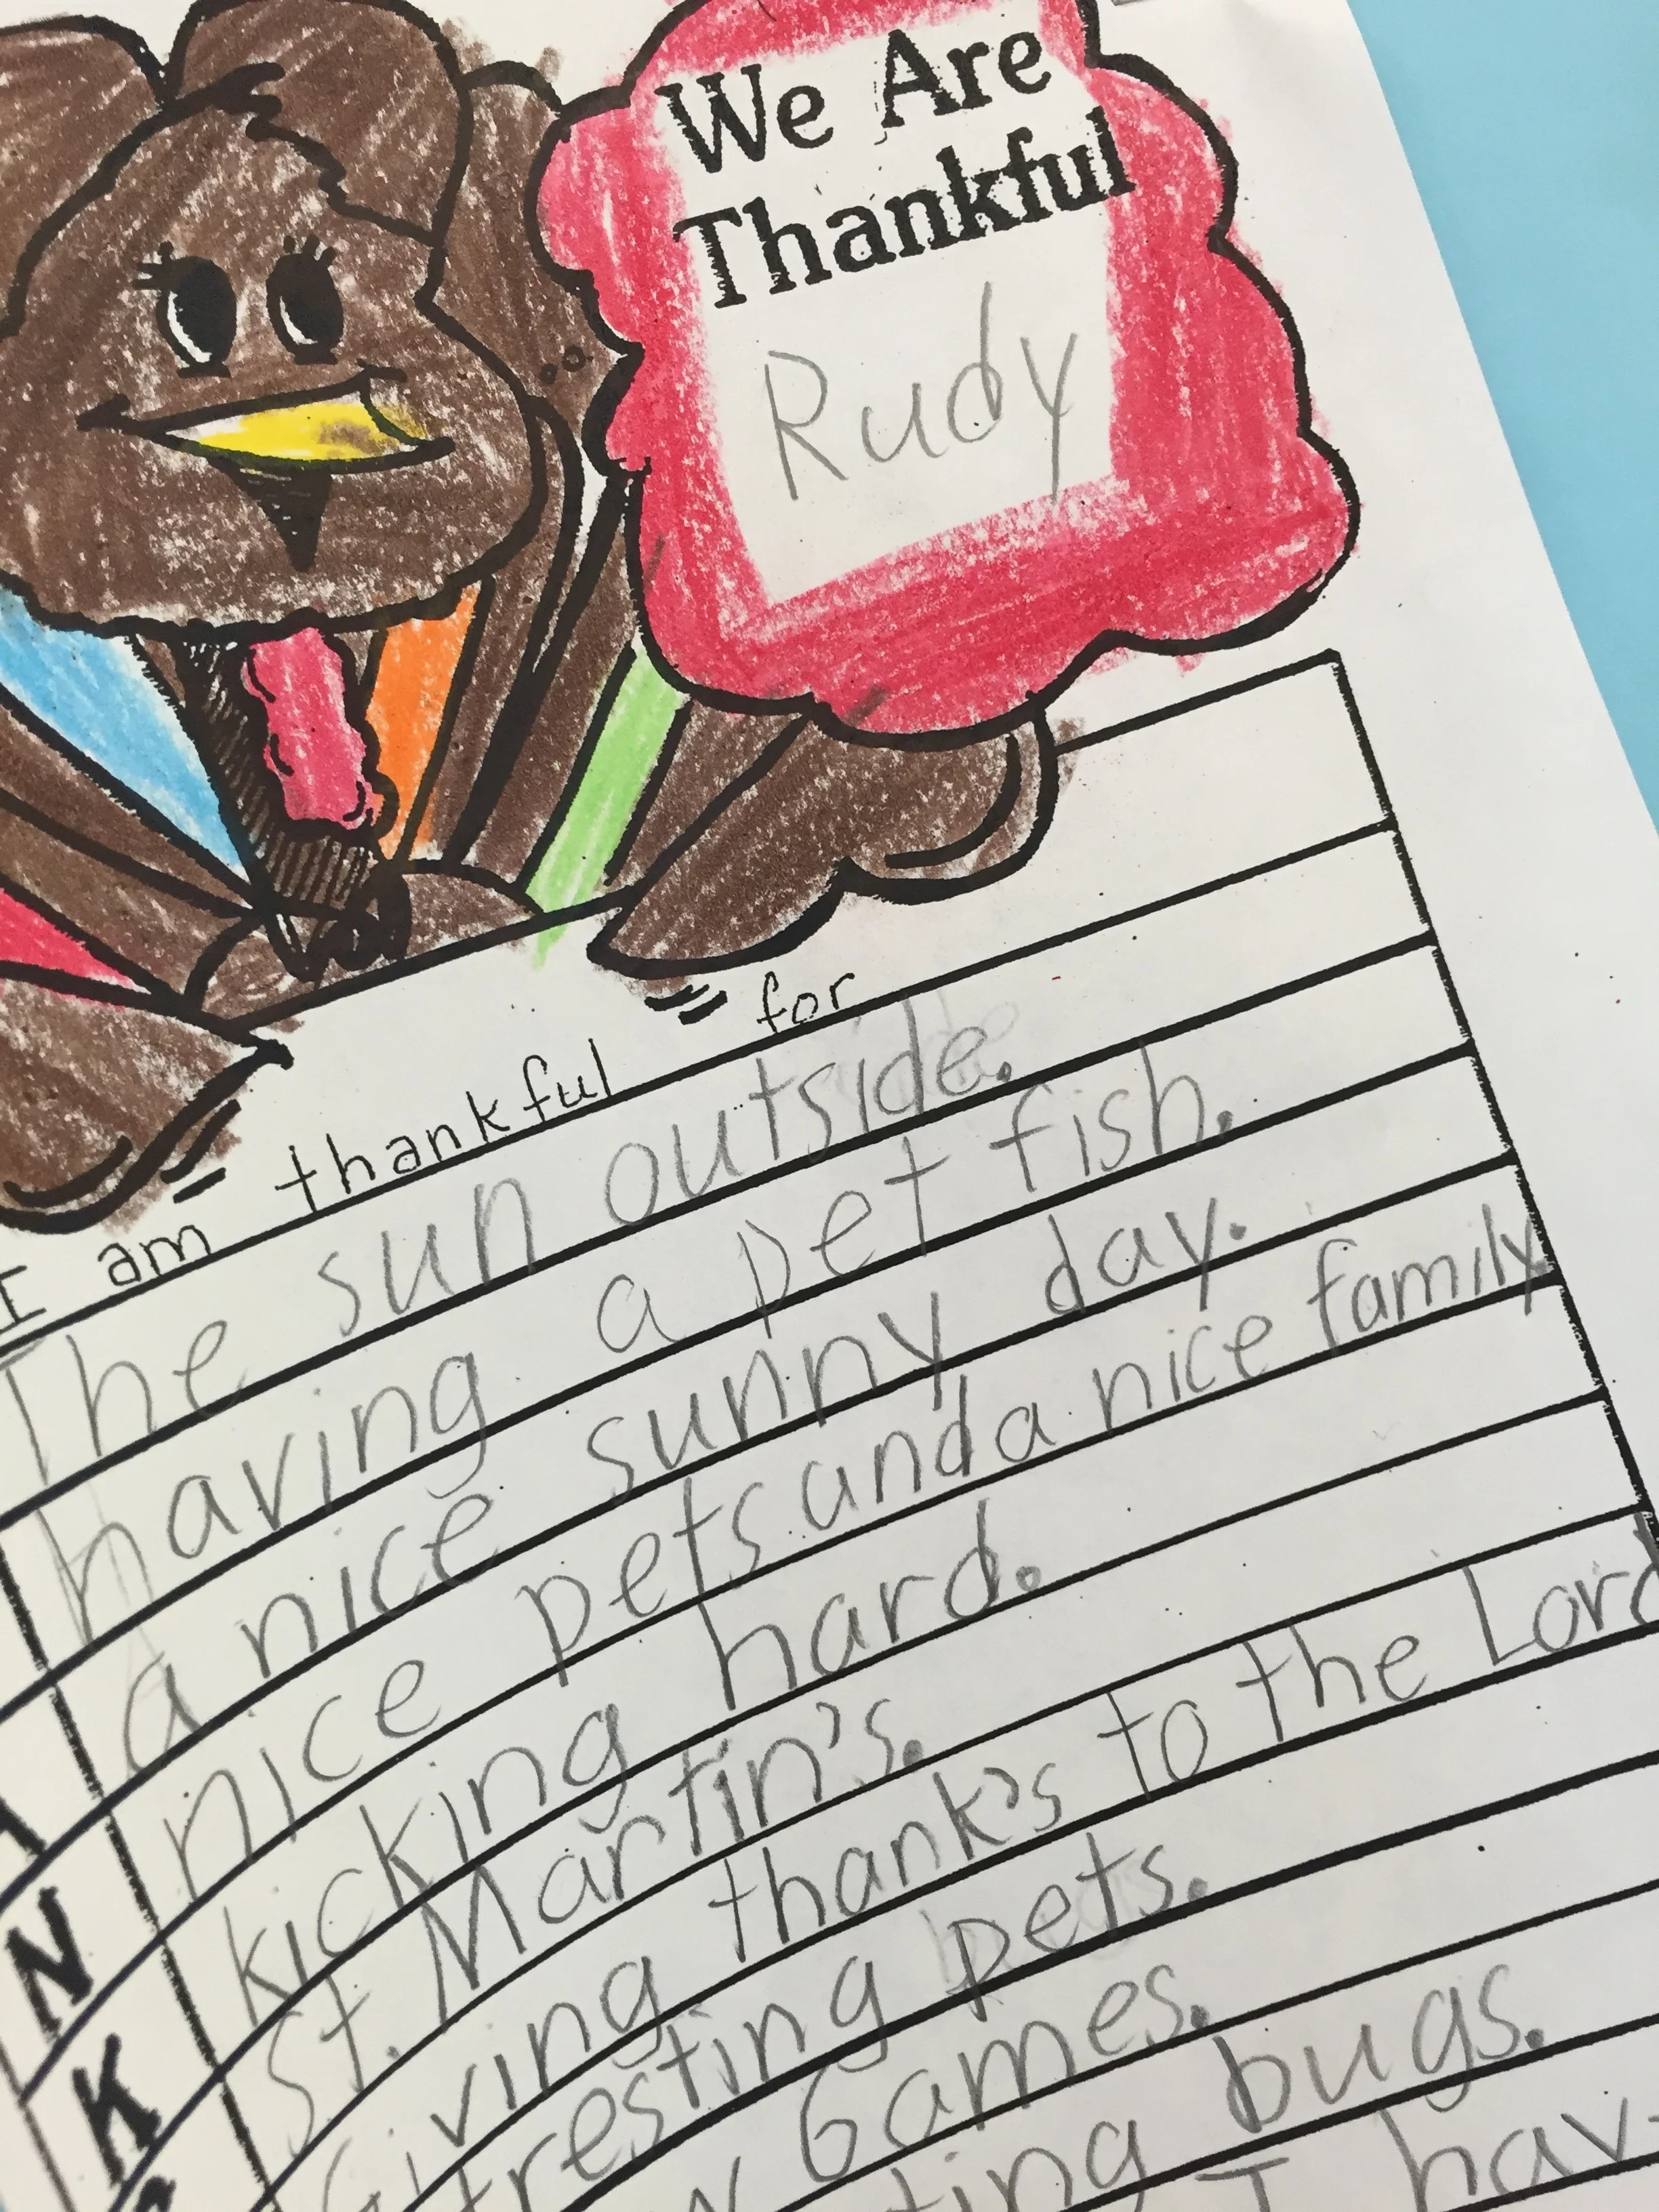 We Are
Thankful
Rudy
I am thankful for
The sun outside.
having a pet fish.
a nice sunny day.
nice pets and a nice family.
N kicking hard.
K St. Martin's.
Giving thank's to the Lord
pets.
Games.
bugs.
I